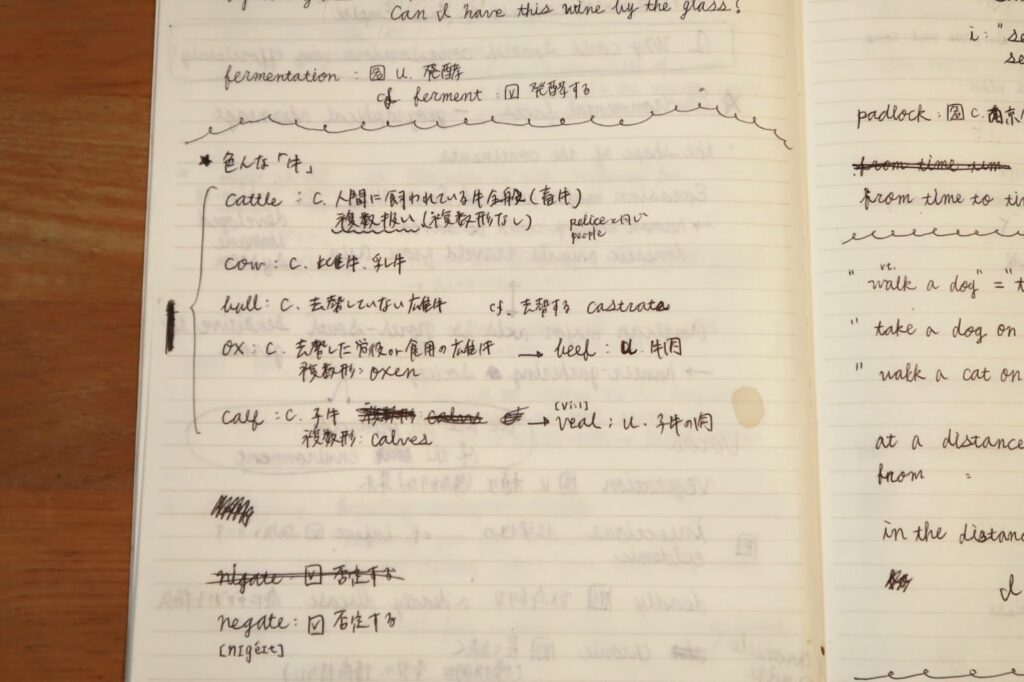 Can I have this wine by the glass?
fermentation : 名 U. 発酵
cf. ferment : V 発酵する
* 色んな「牛」
cattle : C. 人間に飼われている牛全般 (畜牛)
複数扱い (複数形なし) police と同じ
people
cow : C. 雌牛、乳牛
bull : C. 去勢していない雄牛 cf. 去勢する castrate
ox : C. 去勢した労役or食用の雄牛 → beef : U. 牛肉
複数形 : oxen
calf : C. 子牛 → veal : U. 子牛の肉
[vi:l]
複数形 : calves
negate : V 否定する
negate : V 否定する
[nɪgéɪt]
i : "se
se
padlock : 名 C. 南京
from time tim
from time to ti
vt.
" walk a dog" = "t
" take a dog on
" walk a cat on
at a distance
from 〃
in the distan